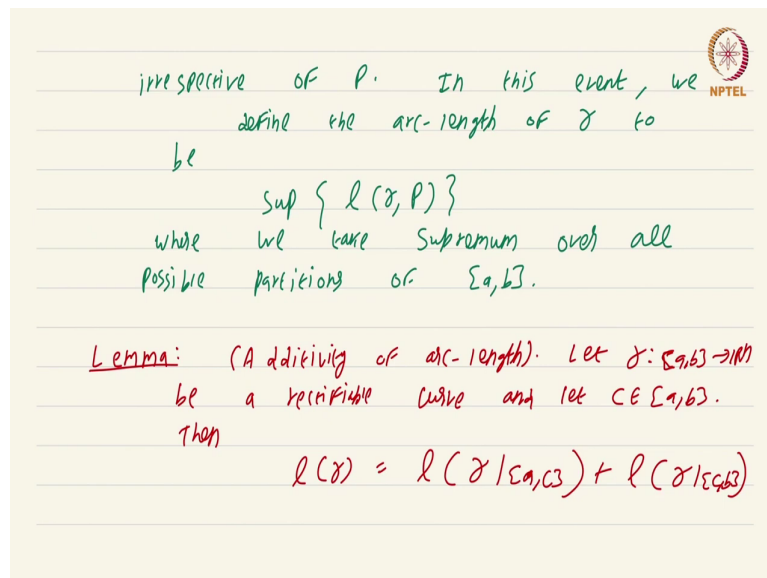 irrespective of P. In this event, we
NPTEL
define the arc-length of γ to
be
sup { l(γ, P) }
where we take supremum over all
possible partitions of [a,b].
Lemma: (Additivity of arc-length). Let γ: [a,b] → ℝⁿ
be a rectifiable curve and let c ∈ [a,b].
Then
l(γ) = l(γ|[a,c]) + l(γ|[c,b])